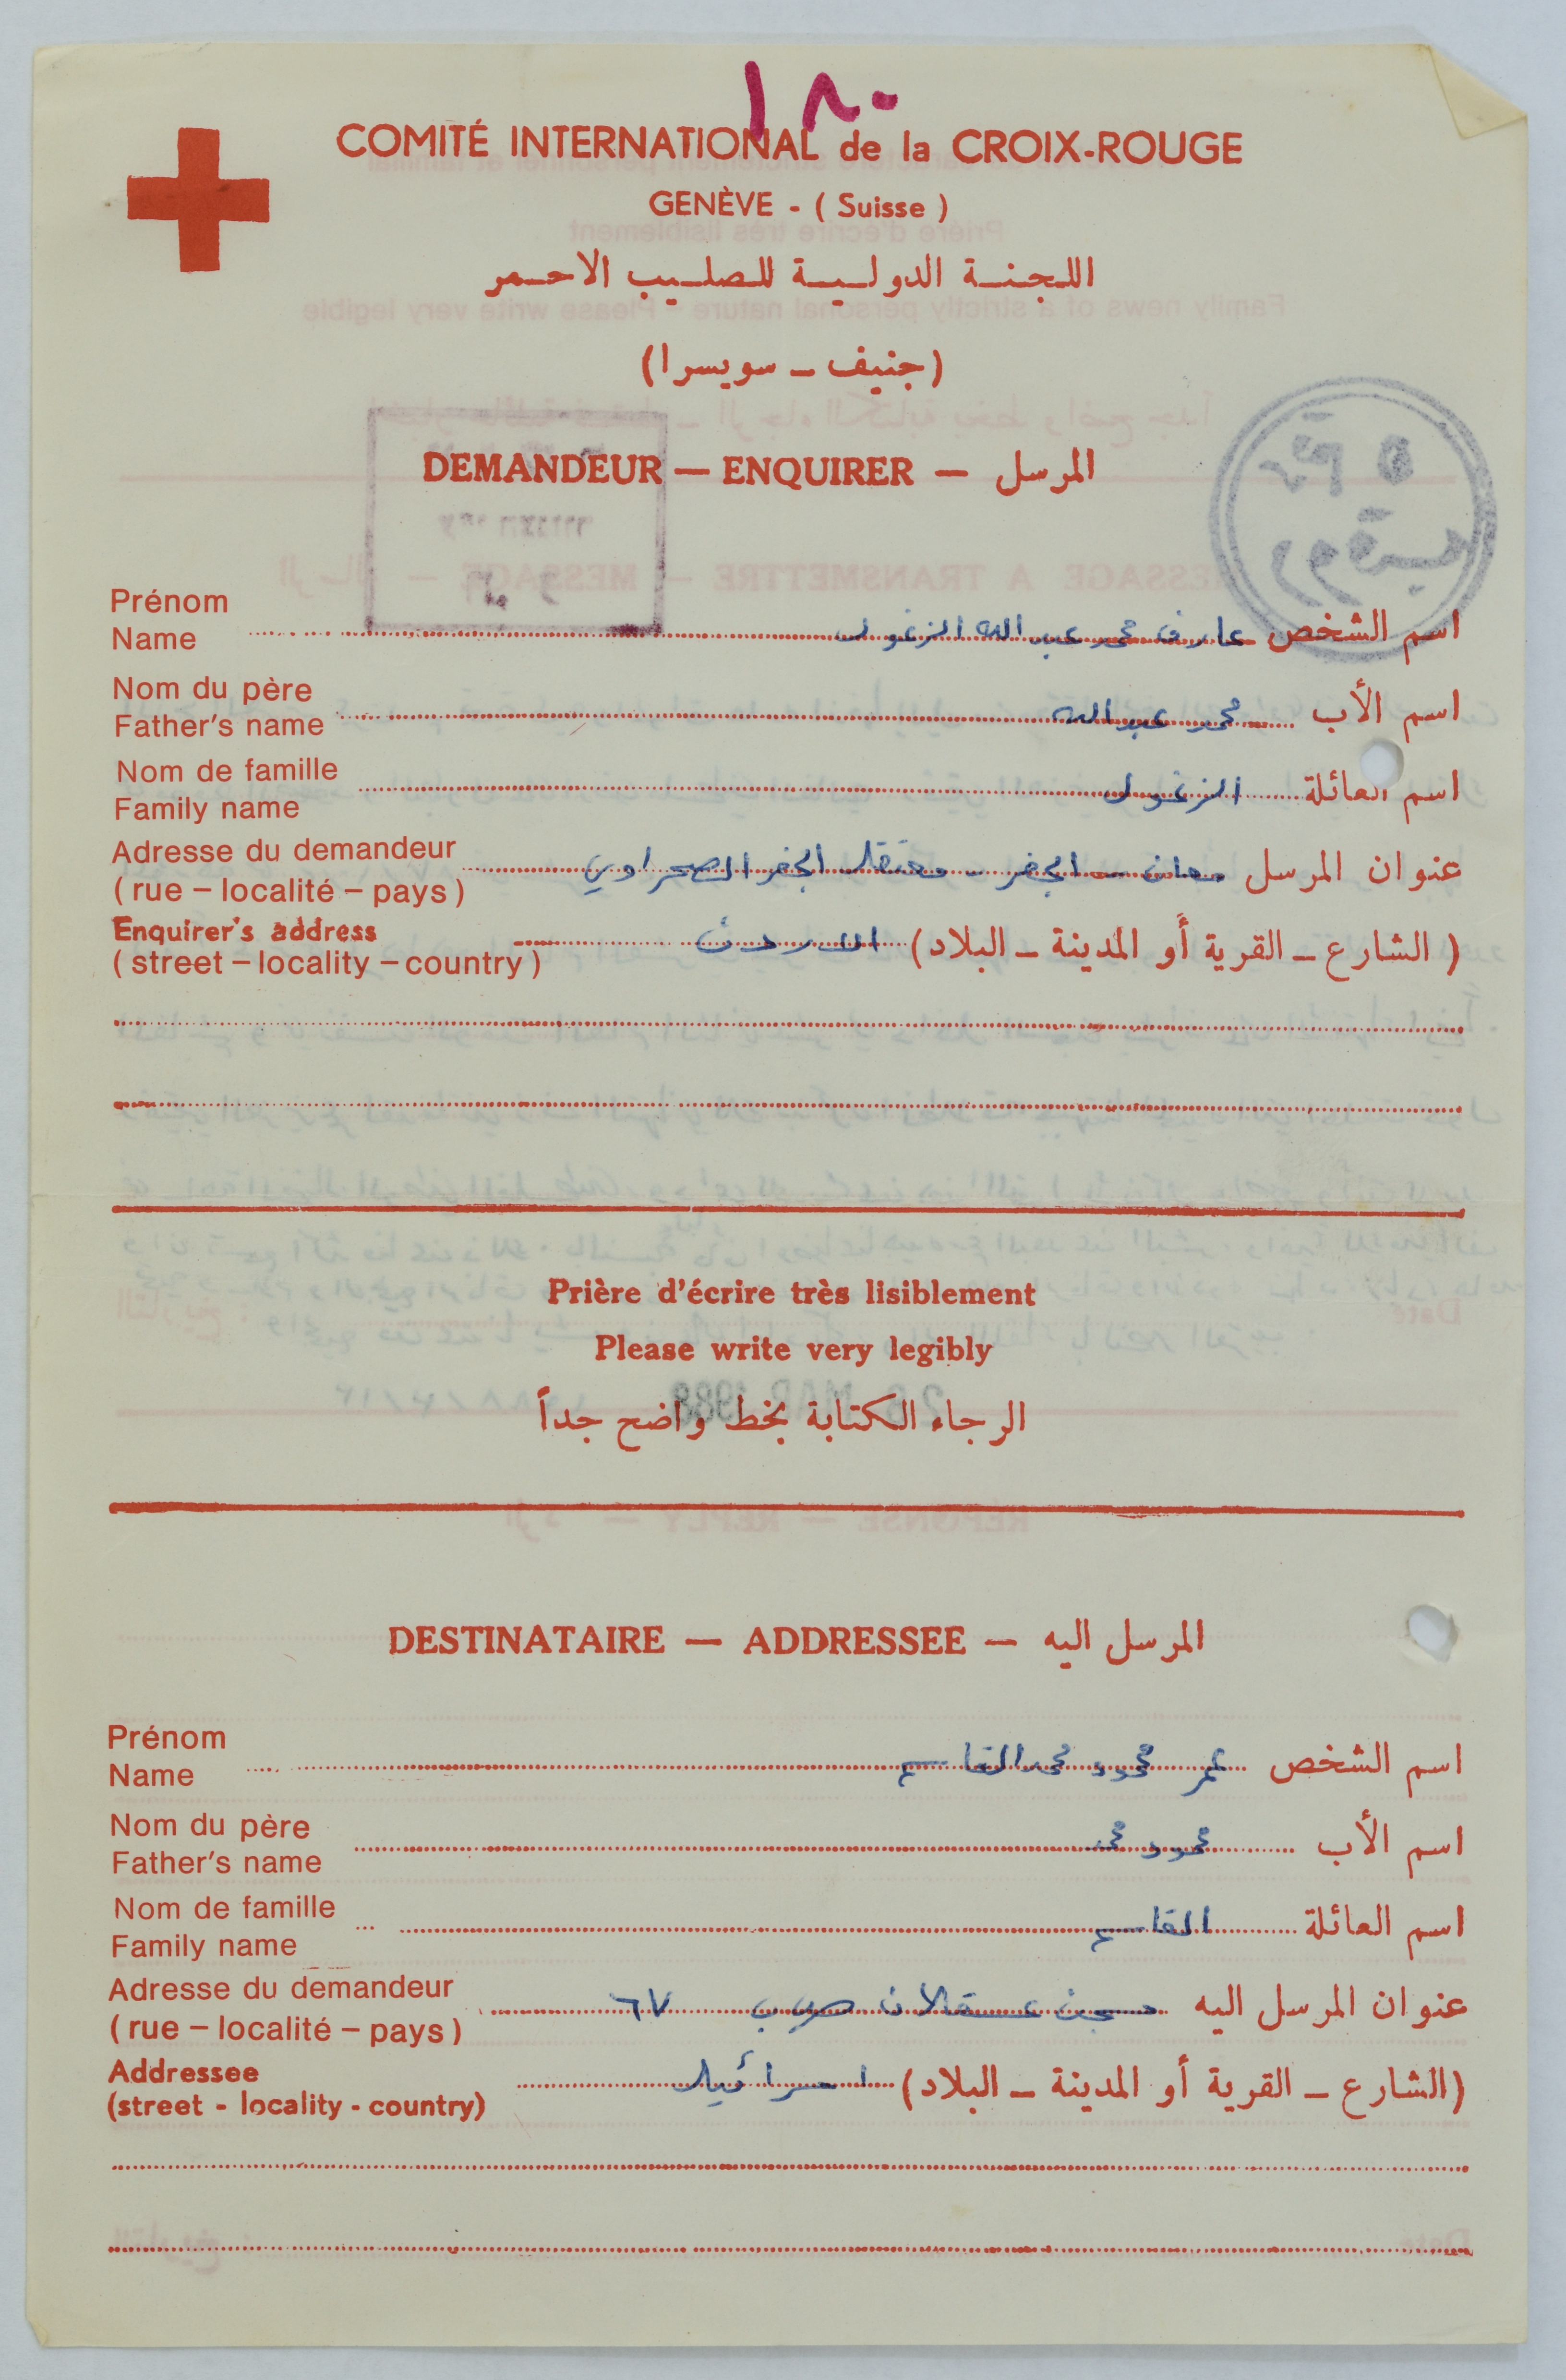 ١٨٠
COMITÉ INTERNATIONAL de la CROIX-ROUGE
GENÈVE - ( Suisse )
اللجنة الدولية للصليب الاحمر
(جنيف - سويسرا)
DEMANDEUR — ENQUIRER — المرسل
Prénom
Name اسم الشخص عارف محمد عبد الله الزغول
Nom du père
Father's name اسم الأب محمد عبد الله
Nom de famille
Family name اسم العائلة الزغول
Adresse du demandeur
( rue – localité – pays ) عنوان المرسل معان - الجفر - معتقل الجفر الصحراوي
Enquirer's address
( street – locality – country ) ( الشارع - القرية أو المدينة - البلاد) الاردن
Prière d'écrire très lisiblement
Please write very legibly
الرجاء الكتابة بخط واضح جداً
28 MAR 1988
DESTINATAIRE — ADDRESSEE — المرسل اليه
Prénom
Name اسم الشخص عمر محمود محمد القاسم
Nom du père
Father's name اسم الأب محمود محمد
Nom de famille
Family name اسم العائلة القاسم
Adresse du demandeur
( rue – localité – pays ) عنوان المرسل اليه سجن عسقلان ص.ب ٦٧
Addressee
(street - locality - country) (الشارع - القرية أو المدينة - البلاد) اسرائيل